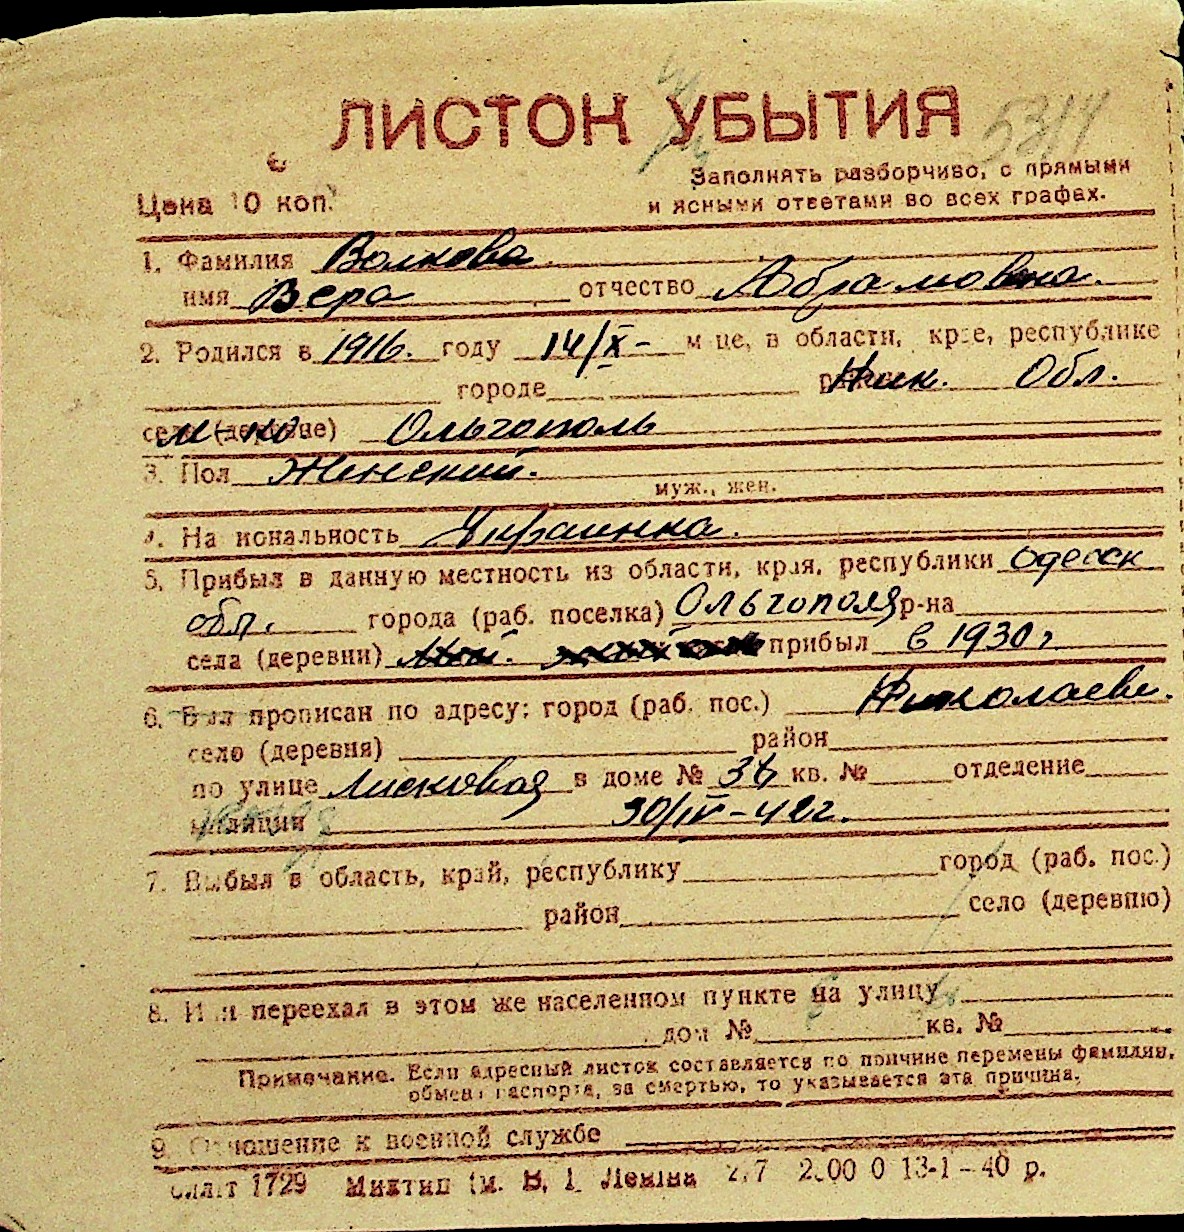 ЛИСТОК УБЫТИЯ 5314
Цена 10 коп.
Заполнять разборчиво, с прямыми
и ясными ответами во всех графах.
1. Фамилия Волкова
имя Вера отчество Абрамовна.
2. Родился в 1916. году 14/X- м-це, в области, крае, республике
городе Ник. Обл.
м-ко (деревне) Ольгополь
3. Пол Женский.
муж., жен.
4. Национальность Украинка.
5. Прибыл в данную местность из области, края, республики Одесск
обл. города (раб. поселка) Ольгополя р-на
села (деревни) прибыл в 1930 г
6. Был прописан по адресу: город (раб. пос.) Николаеве.
село (деревня) район
по улице Лисковая в доме № 36 кв. № отделение
милиции 30/IV-42г.
7. Выбыл в область, край, республику город (раб. пос.)
район село (деревню)
8. Или переехал в этом же населенном пункте на улицу
дом № кв. №
Примечание. Если адресный листок составляется по причине перемены фамилии,
обмена паспорта, за смертью, то указывается эта причина.
9. Отношение к военной службе
1729 Миктип им. В. І. Леніна 13-1-40 р.